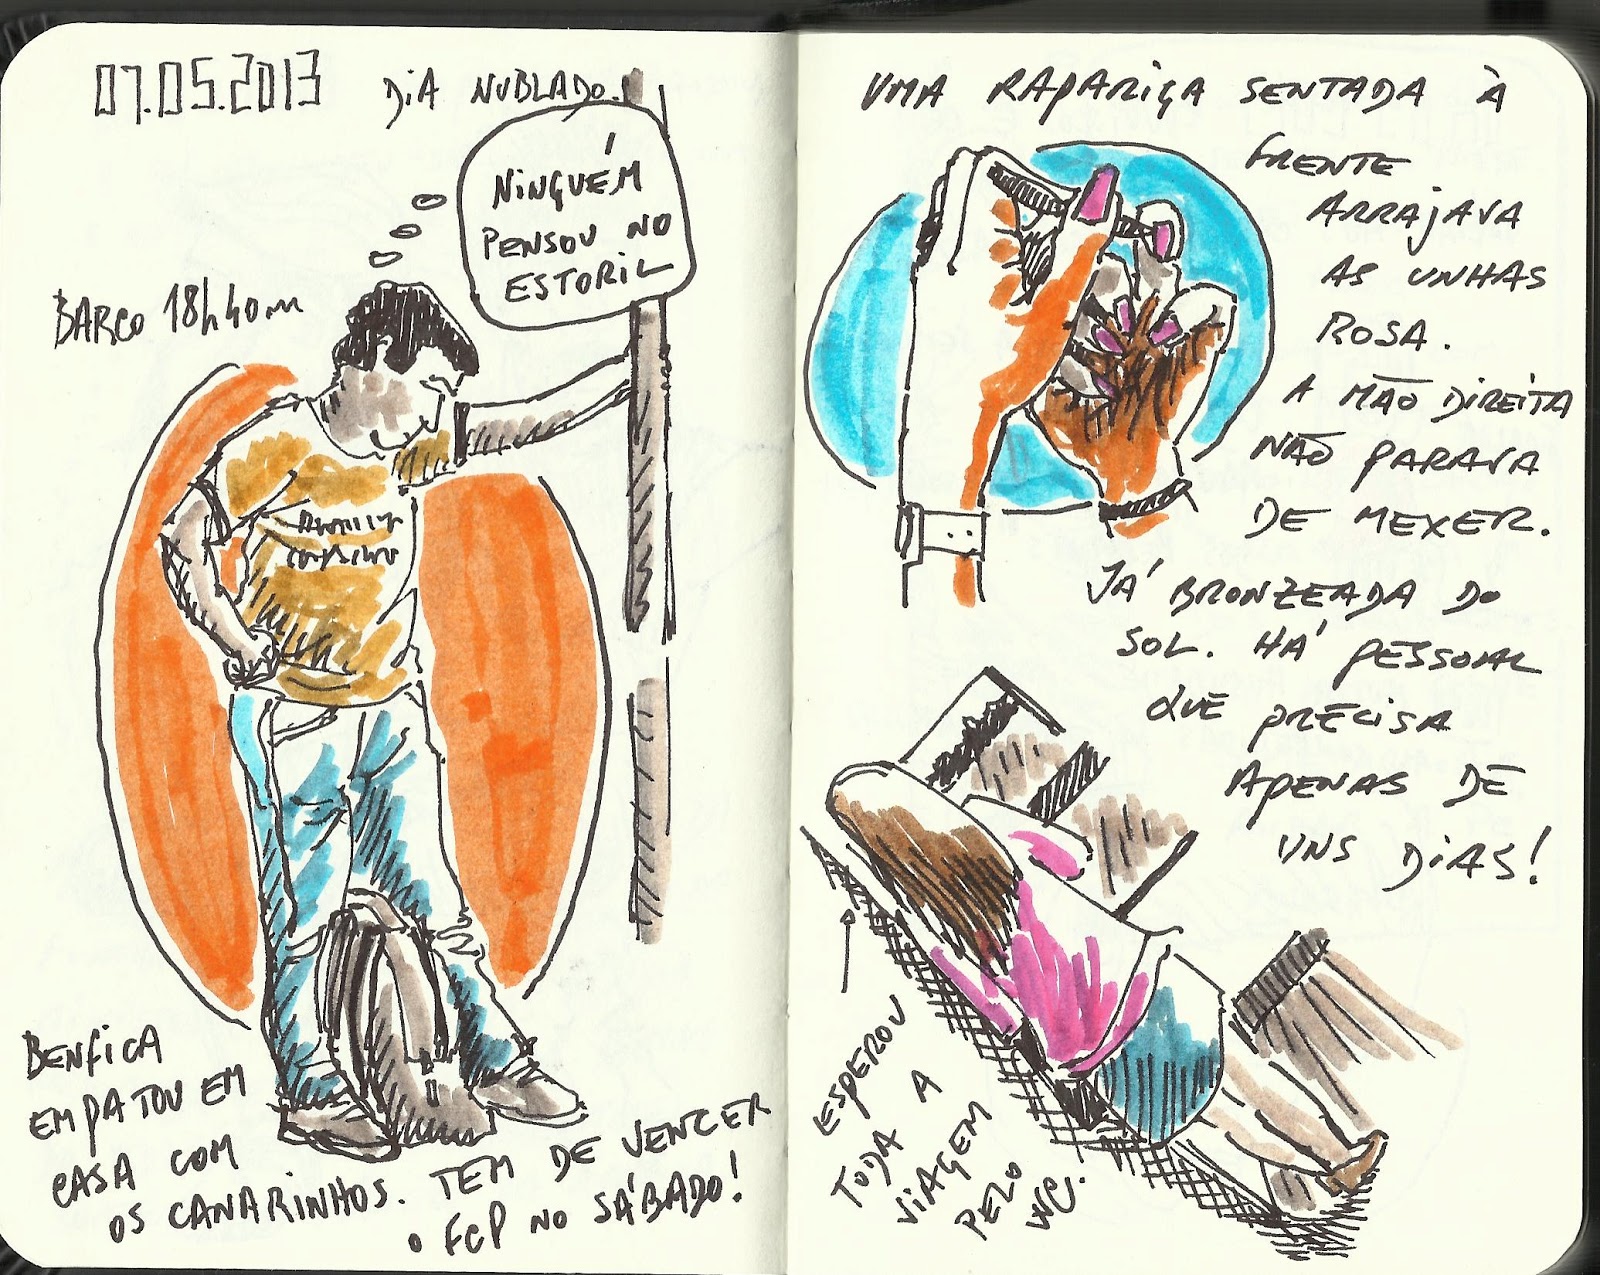 07.05.2013
DIA NUBLADO.
NINGUÉM
PENSOU NO
ESTORIL
BARCO 18h40m
BENFICA
EMPATOU EM
CASA COM
OS CANARINHOS. TEM DE VENCER
O FCP NO SÁBADO!
UMA RAPARIGA SENTADA À
FRENTE
ARRAJAVA
AS UNHAS
ROSA.
A MÃO DIREITA
NÃO PARAVA
DE MEXER.
JÁ BRONZEADA DO
SOL. HÁ PESSOAL
QUE PRECISA
APENAS DE
UNS DIAS!
ESPEROU
TODA A
VIAGEM
PELO
WC.